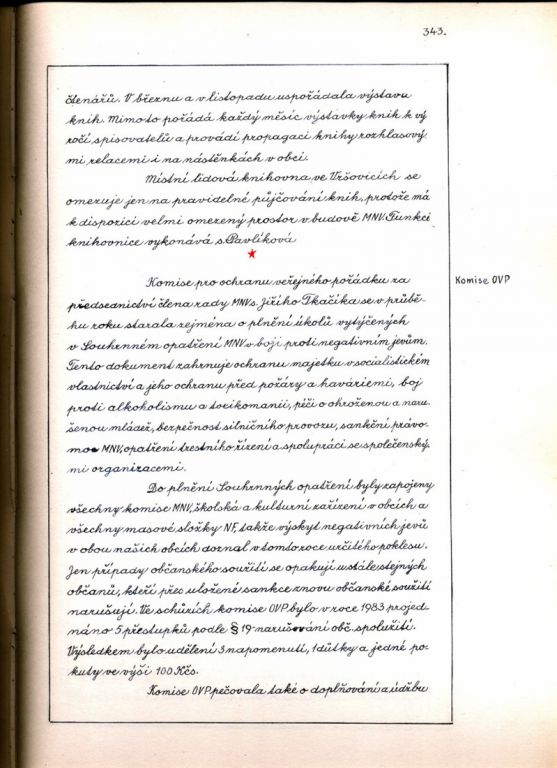 343.
čtenářů. V březnu a v listopadu uspořádala výstavu
knih. Mimo to pořádá každý měsíc výstavky knih k vý
ročí spisovatelů a provádí propagaci knihy rozhlasový-
mi relacemi i na nástěnkách v obci.
Místní lidová knihovna ve Vršovicích se
omezuje jen na pravidelné půjčování knih, protože má
k dispozici velmi omezený prostor v budově MNV. Funkci
knihovnice vykonává s. Pavlíková
Komise OVP
Komise pro ochranu veřejného pořádku za
předsednictví člena rady MNV s. Jiřího Tkačíka se v průbě-
hu roku starala zejména o plnění úkolů vytýčených
v Souhrnném opatření MNV v boji proti negativním jevům.
Tento dokument zahrnuje ochranu majetku v socialistickém
vlastnictví a jeho ochranu před požáry a haváriemi, boj
proti alkoholismu a toxikomanii, péči o ohroženou a naru-
šenou mládež, bezpečnost silničního provozu, sankční právo-
moc MNV, opatření trestního řízení a spolupráci se společenský-
mi organizacemi.
Do plnění Souhrnných opatření byly zapojeny
všechny komise MNV, školská a kulturní zařízení v obcích a
všechny masové složky NF, takže výskyt negativních jevů
v obou našich obcích doznal v tomto roce určitého poklesu.
Jen případy občanského soužití se opakují u stále stejných
občanů, kteří přes uložené sankce znovu občanské soužití
narušují. Ve schůzích komise OVP bylo v roce 1983 projed-
náno 5 přestupků podle § 19-narušování obč. spolužití.
Výsledkem bylo udělení 3 napomenutí, 1 důtky a jedné po-
kuty ve výši 100 Kčs.
Komise OVP pečovala také o doplňování a údržbu